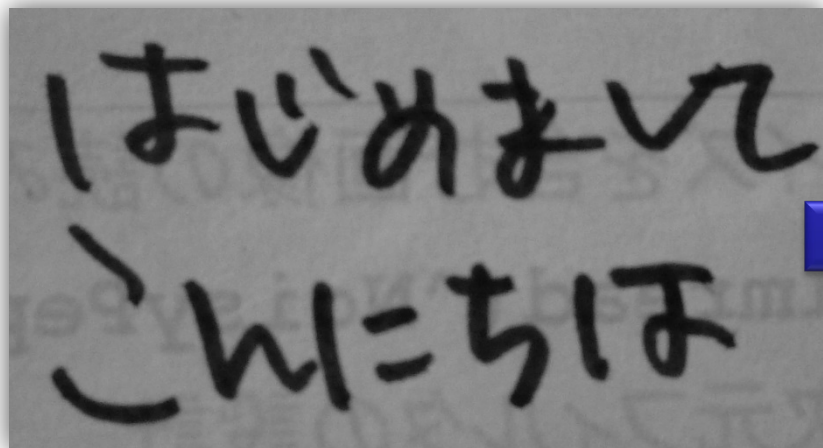 はじめまして
こんにちは